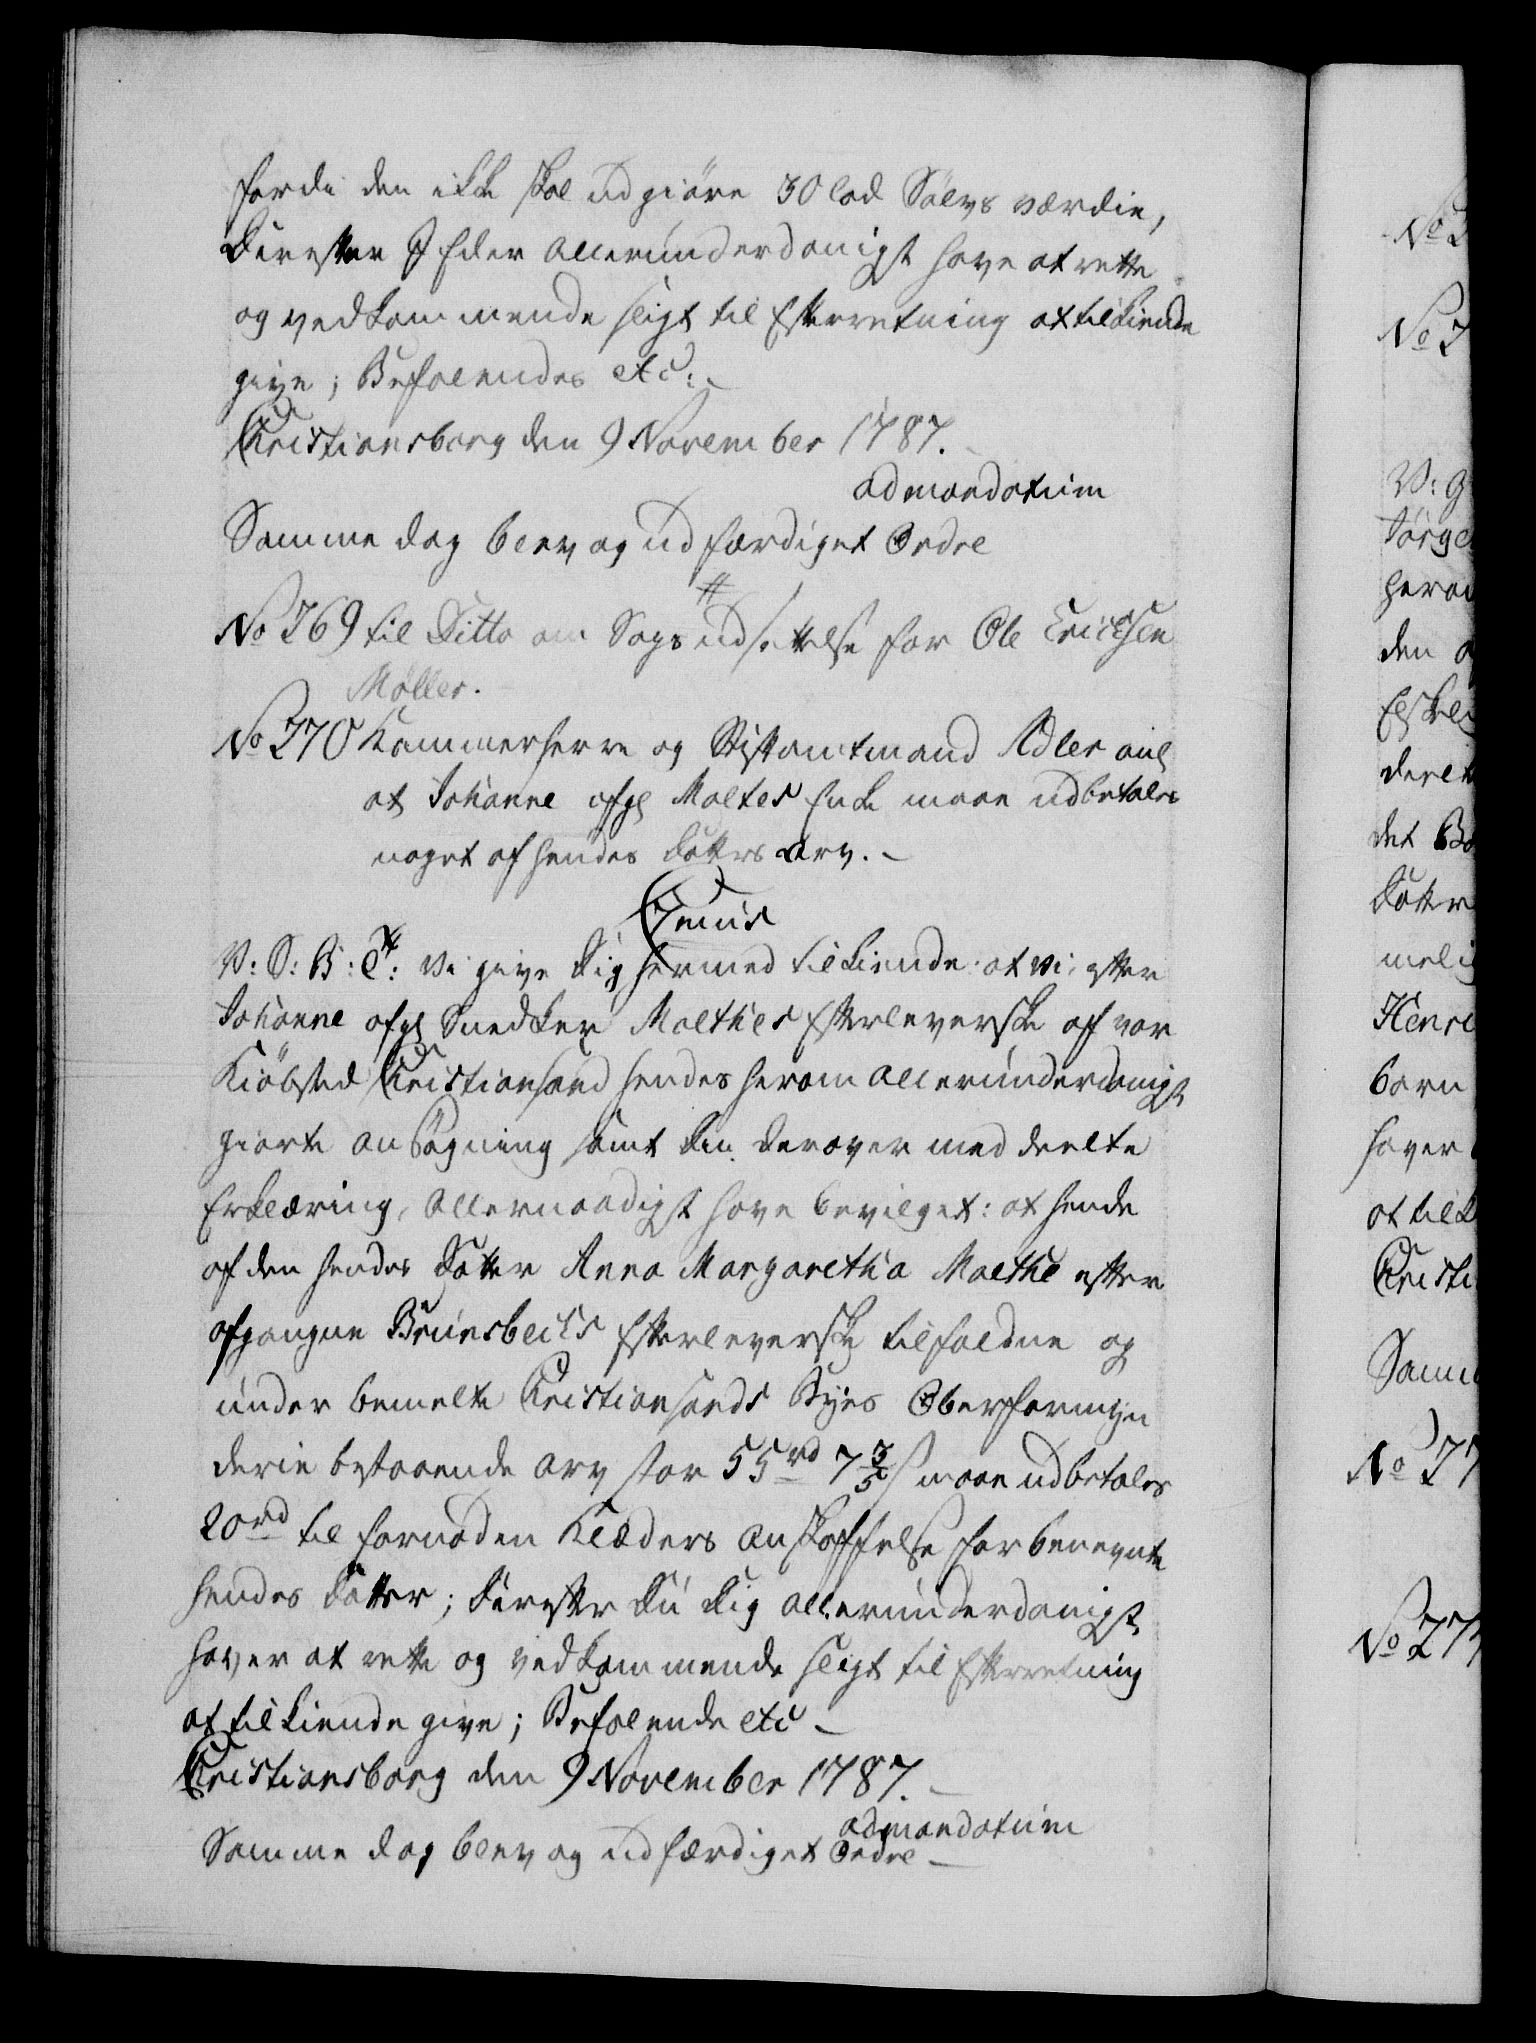 fordi den ikke skal udgiöre 30 lod Sölvs værdie,
Derefter I Eder allerunderdanigst have at rette
og vedkommende sligt til Efterretning at tilkiende
give; Befalendes etc:
Christiansborg den 9 November 1787.
ad mandatum
Samme dag blev og udfærdiget Ordre
No 269 til Ditto om Sags udsettelse for Ole Ericksen
Møller.
No 270 Kammerherre og Stiftamtmand Adler anl
at Johanne afgl Maltes Enke maae udbetales
noget af hendes Datters Arv.
Genius
V: S: G: Et: Vi give Dig hermed tilkiende: at vi, efter
Johanne afgl Snedker Malthes Efterleverske af vor
Kiöbsted Christiansand hendes herom allerunderdanigst
giorte ansøgning samt din derover meddeelte
Erklæring, allernaadigst have bevilget: at hende
af den hendes Datter Anna Margaretha Malthe efter
afgangne Brunsbecks Efterleverske tilfaldne og
under bemelte Christiansands Byes Oberformyn
derie bestaaende Arv stor 55 rd 7 3/5 s maae udbetales
20 rd til fornøden Klæders anskaffelse for benevnte
hendes Datter; Derefter Du Dig allerunderdanigst
haver at rette og vedkommende sligt til Efterretning
at tilkiende give; Befalende etc
Christiansborg den 9 November 1787.
ad mandatum
Samme dag blev og udfærdiget Ordre
No 2
No 2
V: G
Jörge
herom
den a
det Bo
Datter
melig
Henri
børn
haver
at tilk
Christi
Samm
No 27
No 27